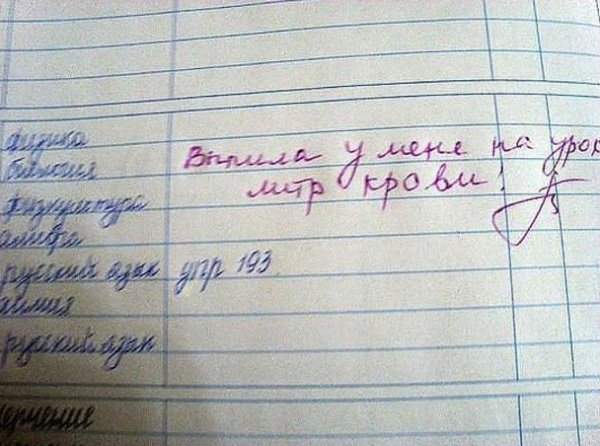 физика
биология Выпила у мене на урок
физкультура литр крови!
алгебра
русский язык упр 193.
химия
русский язык
ерчение